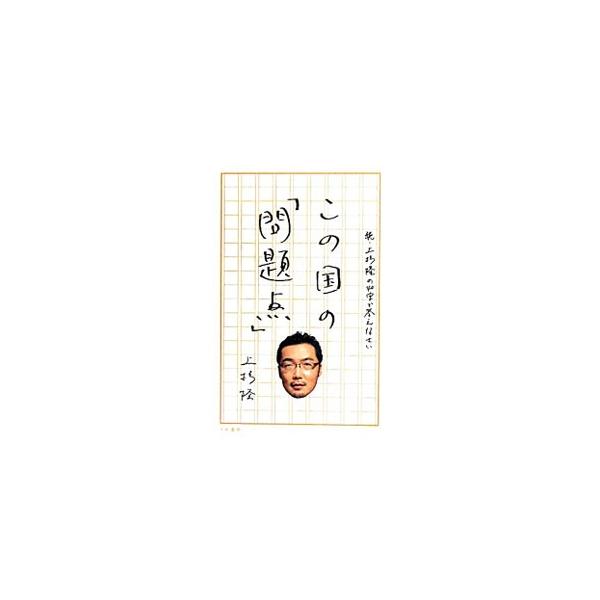 続・上杉隆の40字で答えなさい
この国の
「問題点」
上杉隆